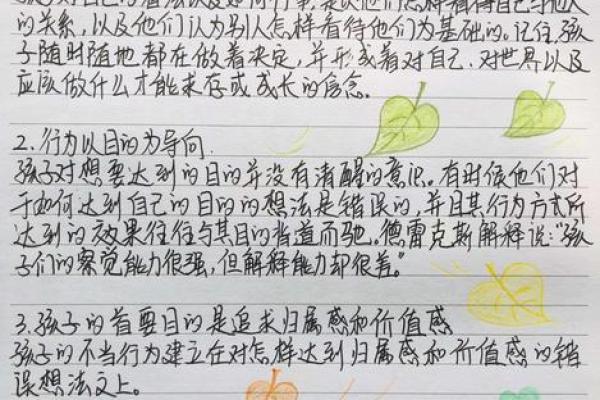 的关系，以及他们认为别人怎样看待他们为基础的。记住，孩
子随时随地都在做着决定，并形成着对自己、对世界以及
应该做什么才能求存或成长的信念。
2.行为以目的为导向.
孩子对想要达到的目的并没有清醒的意识。有时候他们对
于如何达到自己的目的的想法是错误的，并且其行为方式所
达到的效果往往与其目的背道而驰。德雷克斯解释说："孩
子们的察觉能力很强，但解释能力却很差。"
3.孩子的首要目的是追求归属感和价值感
孩子的不当行为建立在对怎样达到归属感和价值感的错
误想法之上。